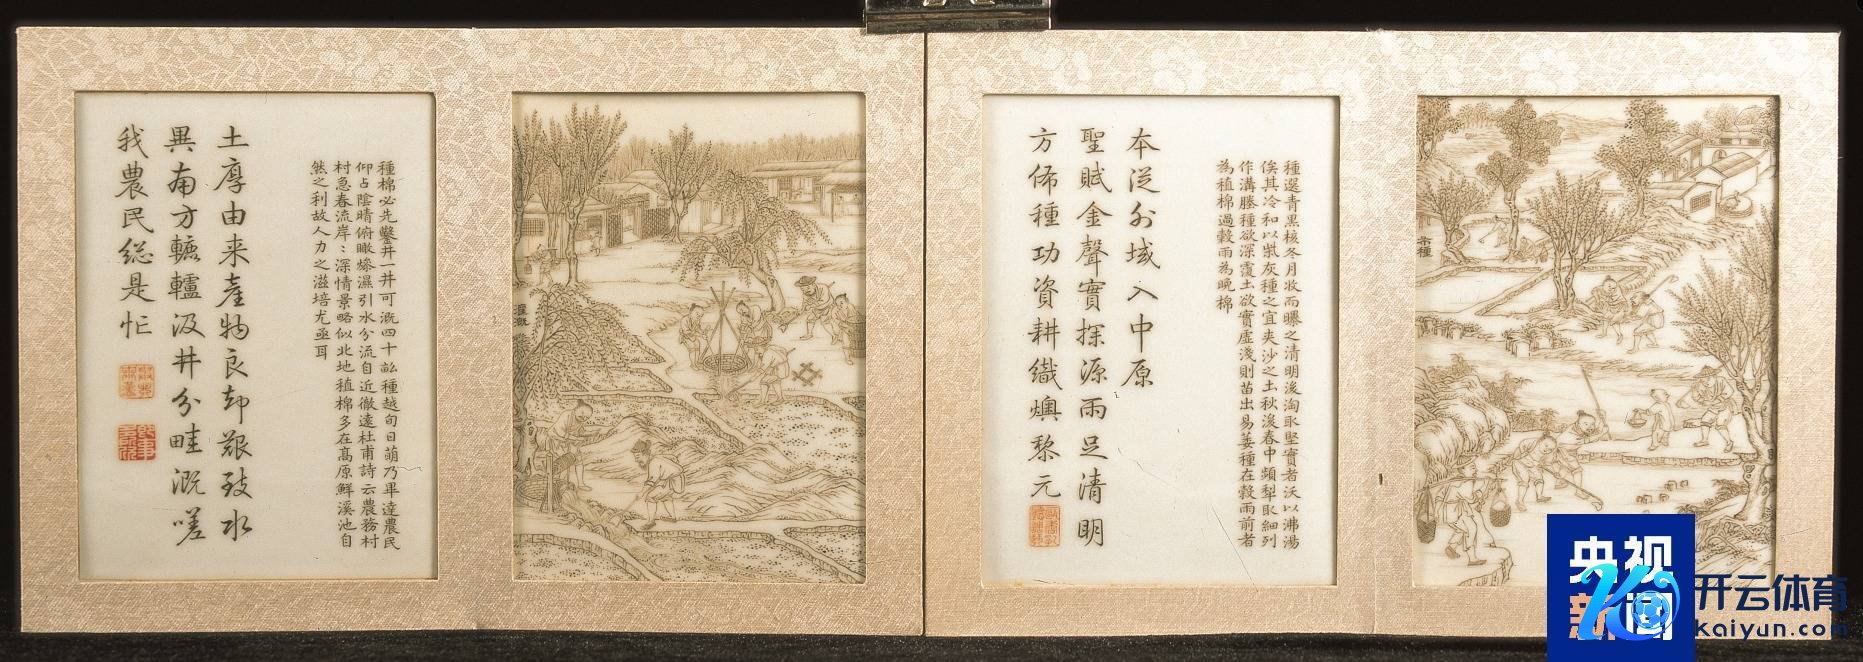 布種
種選青黑核冬月收而曝之清明後淘取堅實者沃以沸湯
俟其冷和以柴灰種之宜夾沙之土秋後春中頻犁取細列
作溝塍種欲深覆土欲實虛淺則苗出易萎種在穀雨前者
為植棉過穀雨為晚棉
本從外域入中原
聖賦金聲實探源雨足清明
方佈種功資耕織燠黎元
灌溉
種棉必先鑿井一井可溉四十畝種越旬日萌乃畢達農民
仰占陰晴俯瞰燥濕引水分流自近徹遠杜甫詩云農務村
村急春流岸〻深情景略似北地植棉多在高原鮮溪池自
然之利故人力之滋培尤亟耳
土厚由来產物良却艱致水
異南方轆轤汲井分畦溉嗟
我農民総是忙
央视
新闻
开云体育
Kaiyun.com